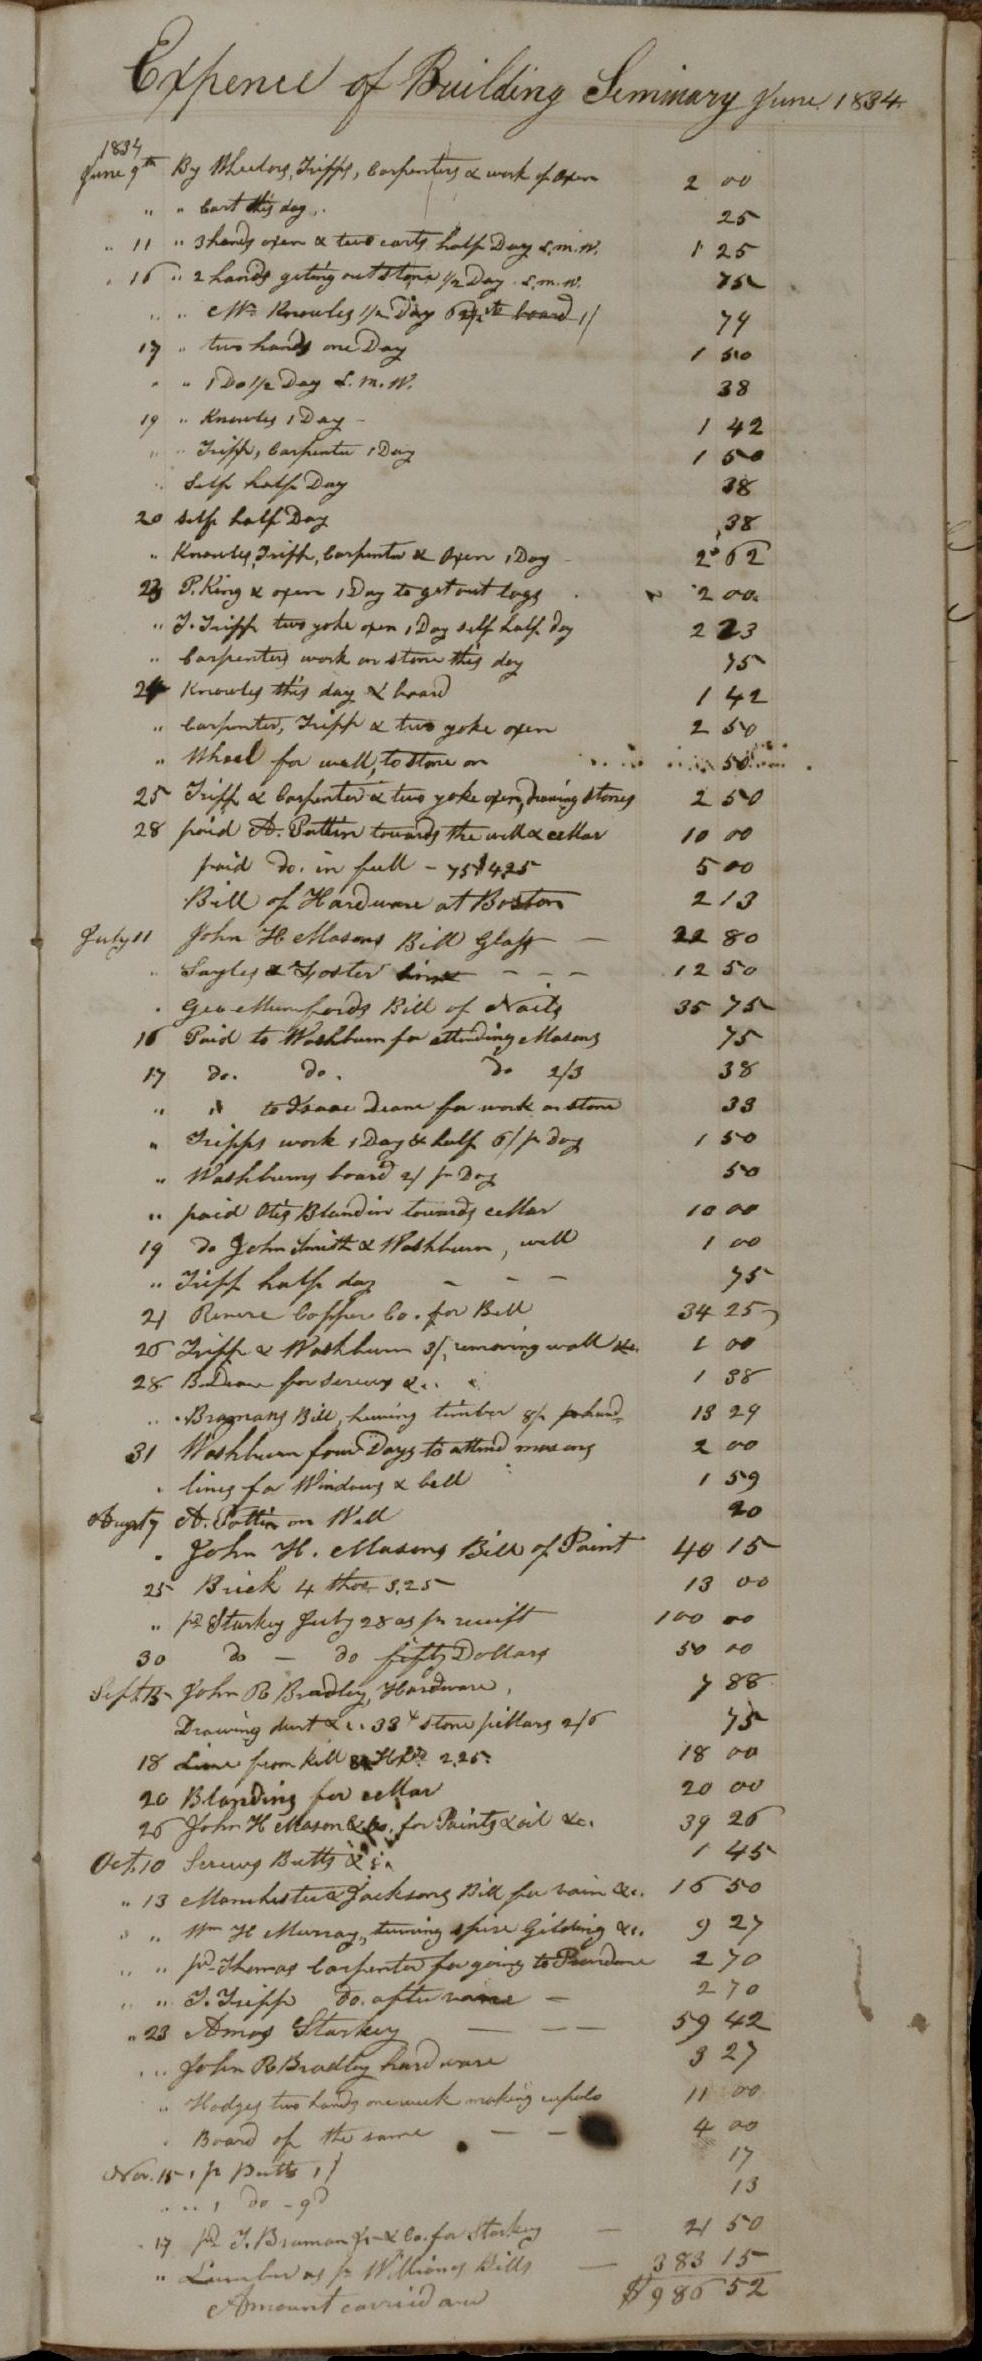 Expence of Building Seminary June 1834.
1834
June 9th By Wheelors, Tripps, Carpenters & work of Oxen 2 00
" " Cart this day 25
" 11 " 3 hands oxen & two carts half Day L.M.W. 1 25
" 16 " 2 hands geting out stone 1/2 Day L.M.W. 75
" " Mr. Knowles 1/2 Day board 1/ 79
17 " two hands one Day 1 50
" " 1 Do 1/2 Day L.M.W. 38
19 " Knowles 1 Day 1 42
" " Tripp, Carpenter 1 Day 1 50
" Self half Day 38
20 self half Day 38
" Knowles, Tripp, Carpenter & Oxen 1 Day 2 62
23 P. King & oxen 1 Day to get out logs 2 00
" T. Tripp two yoke oxen 1 Day self half day 2 23
" Carpenters work on stone this day 75
24 Knowles this day & board 1 42
" Carpenter, Tripp & two yoke oxen 2 50
" Wheel for well, to stone on 50
25 Tripp & Carpenter & two yoke oxen, drawing stones 2 50
28 paid A. Pattin towards the well & cellar 10 00
paid do. in full - 75 $4.25 5 00
Bill of Hardware at Boston 2 13
July 11 John H Masons Bill Glass 22 80
" Sayles & Foster lime 12 50
" Geo Mumfords Bill of Nails 35 75
16 Paid to Washburn for attending Masons 75
17 do. do. do 2/3 38
" " to Isaac Deane for work on stone 33
" Tripps work 1 Day & half 6/ pr day 1 50
" Washburns board 2/ pr Day 50
" paid Otis Blandin towards cellar 10 00
19 do John Smith & Washburn, well 1 00
" Tripp half day 75
21 Revere Copper Co. for Bell 34 25
26 Tripp & Washburn 3/, removing wall &c. 1 00
28 B. Deane for screws &c. 1 38
" " Bramans Bill, hewing timber 8/ pr hund 13 29
31 Washburn four Days to attend masons 2 00
" lines for Windows & bell 1 59
August 7 A. Pattin on Well 20
" John H. Masons Bill of Paint 40 15
25 Brick 4 thos 3.25 13 00
" pd Starkey July 28 as pr receipt 100 00
30 do - do fifty Dollars 50 00
Sept 15 John R Bradley, Hardware, 7 88
Drawing dirt &c. 33 stone pillars 2/6 75
18 Lime from kill 8 Hhd 2.25 18 00
20 Blanding for cellar 20 00
26 John H Mason & Co. for Paints & oil &c. 39 26
Oct. 10 Screws Butts &c. 1 45
" 13 Manchester & Jacksons Bill for vain &c. 16 50
" " Wm H Murray, turning spire Gilding &c. 9 27
" " pd Thomas Carpenter for going to Providence 2 70
" " T. Tripp do. after vane 2 70
" 23 Amos Starkey 59 42
" " John R Bradley hardware 3 27
" Hodges two hands one week making cupola 11 00
" Board of the same 4 00
Nov. 15 1 pr Butts 1/ 17
" " 1 do - 9d 13
" 17 pd T. Braman Jr & Co. for Starkey 21 50
" Lumber as pr Williams Bills 383 15
Amount carried over $986 52